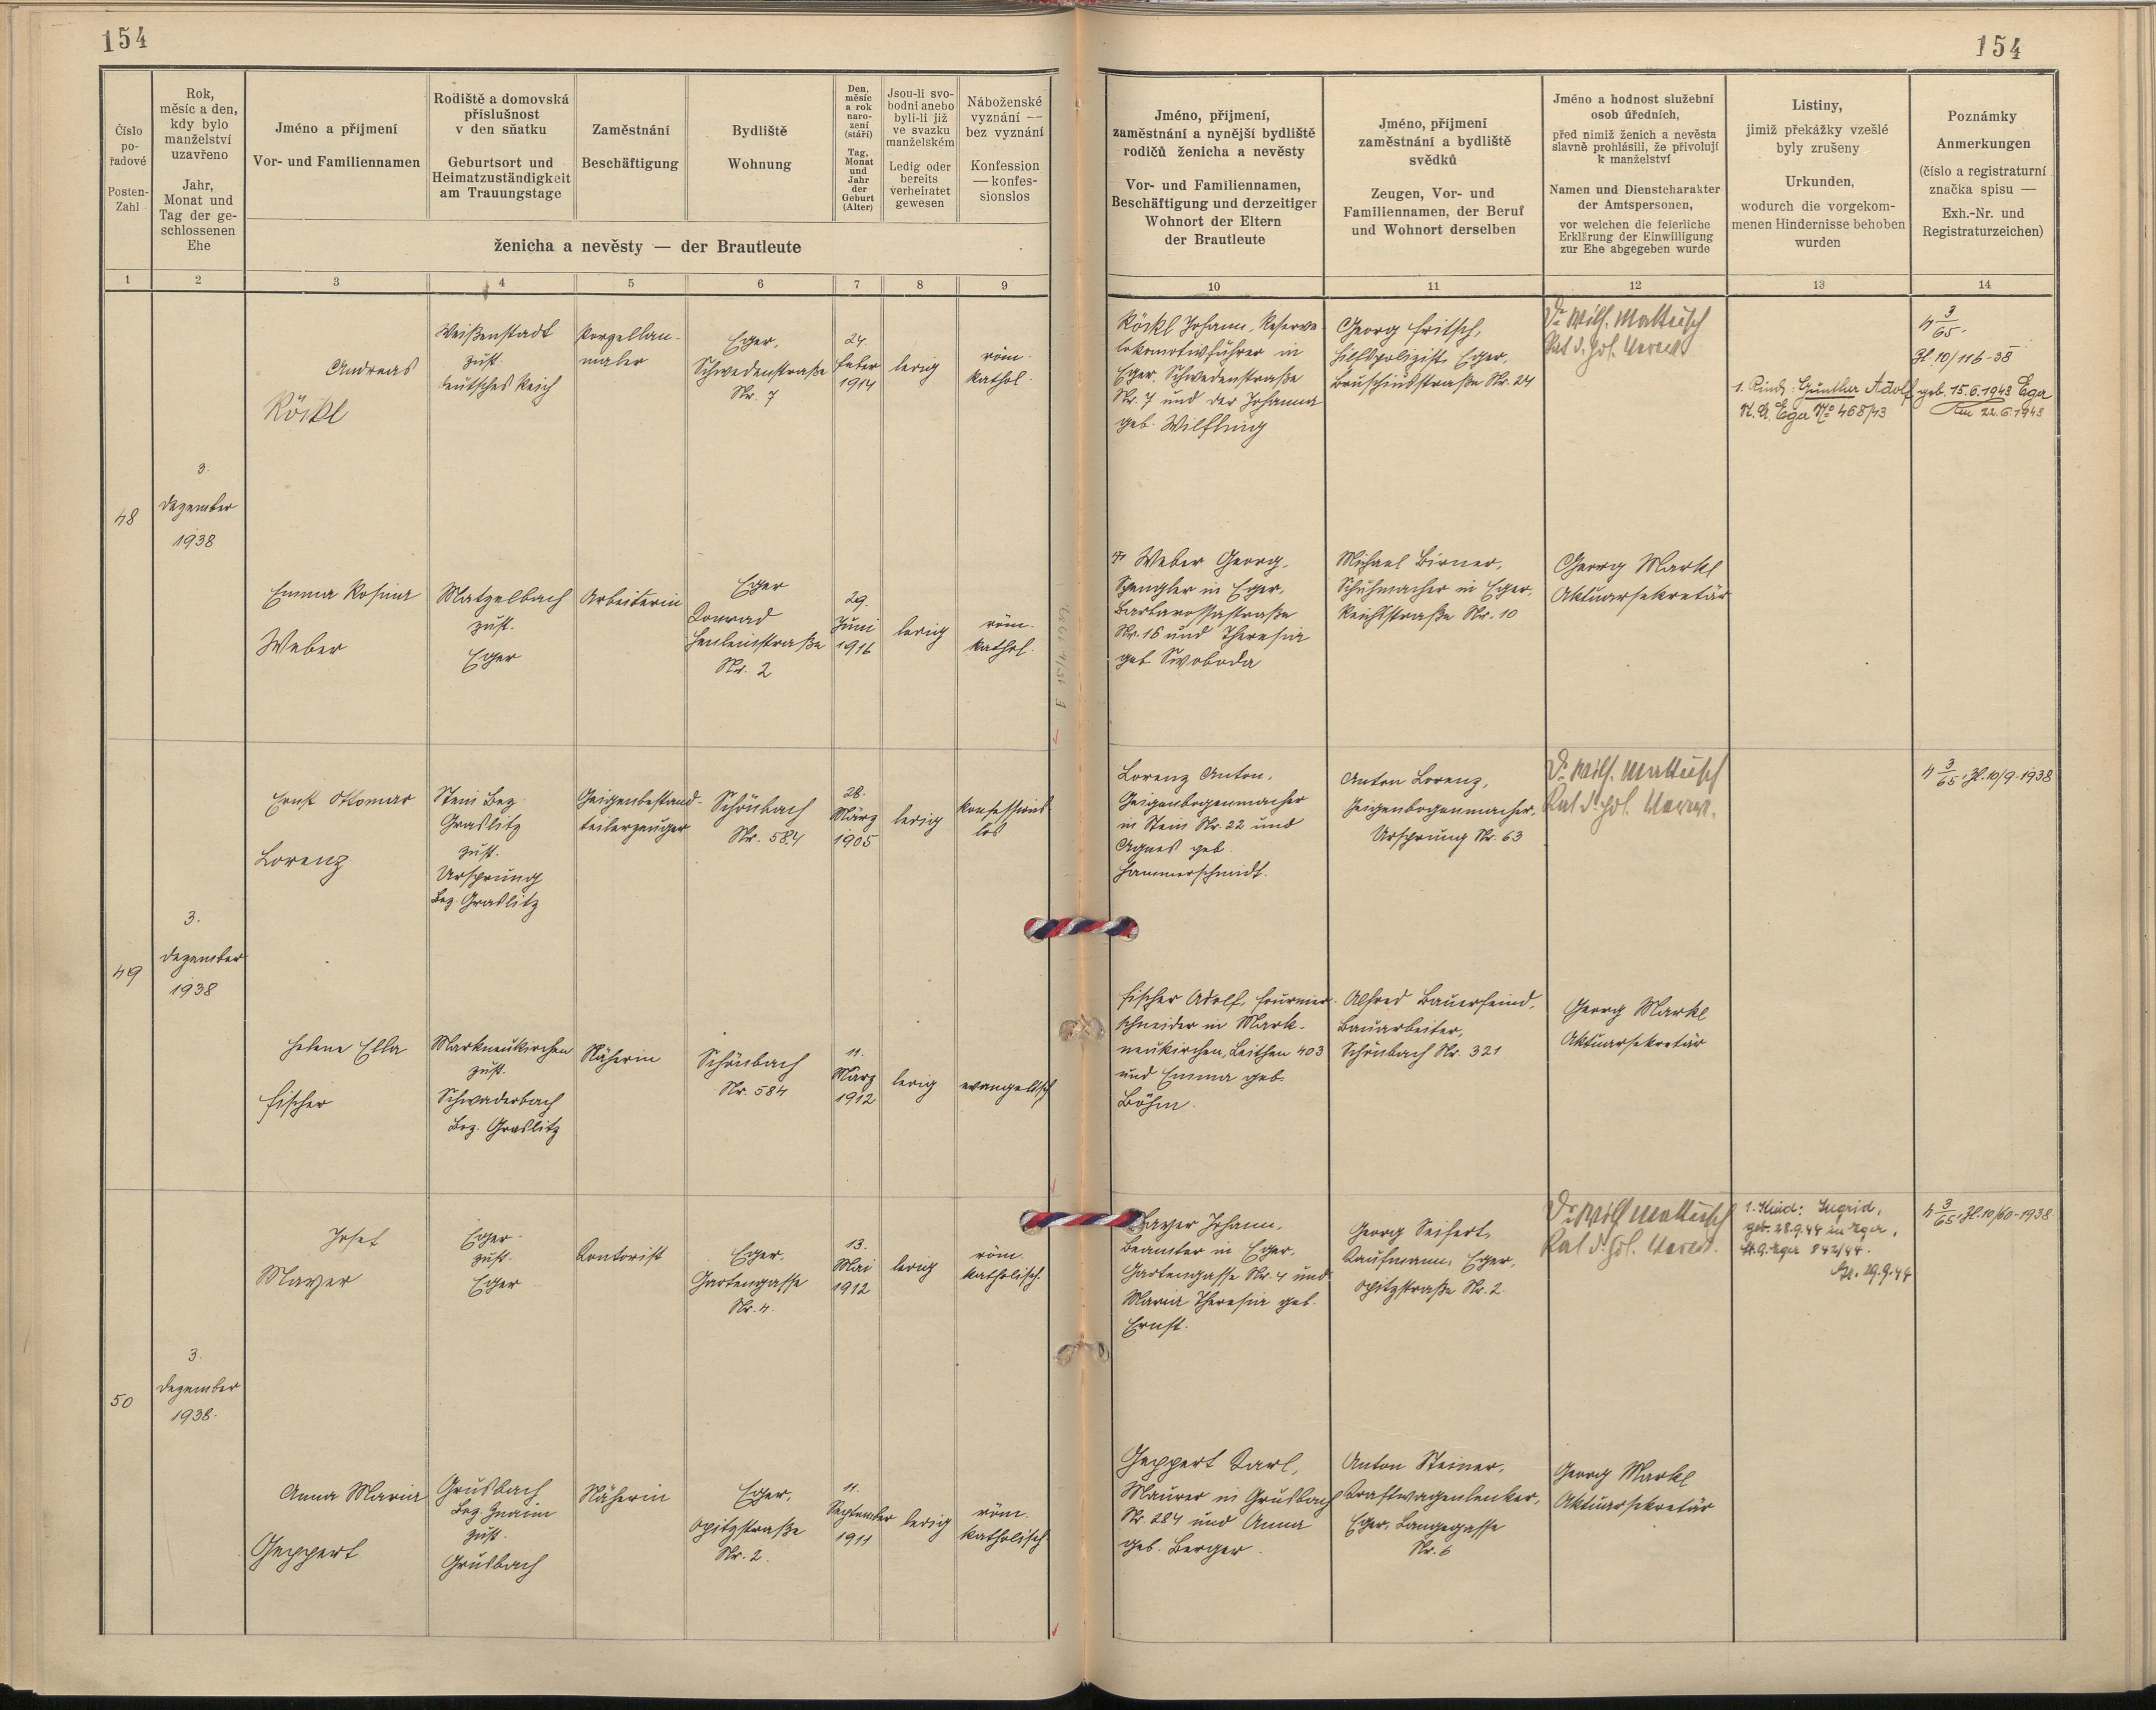 154
154
Číslo po- řadové
Posten- Zahl
Rok, měsíc a den, kdy bylo manželství uzavřeno
Jahr, Monat und Tag der ge- schlossenen Ehe
Jméno a přijmení
Vor- und Familiennamen
Rodiště a domovská příslušnost v den sňatku
Geburtsort und Heimatzuständigkeit am Trauungstage
Zaměstnání
Beschäftigung
Bydliště
Wohnung
Den, měsíc a rok naro- zení (stáří)
Tag, Monat und Jahr der Geburt (Alter)
Jsou-li svo- bodni anebo byli-li již ve svazku manželském
Ledig oder bereits verheiratet gewesen
Náboženské vyznání — bez vyznání
Konfession — konfes- sionslos
ženicha a nevěsty — der Brautleute
Jméno, příjmení, zaměstnání a nynější bydliště rodičů ženicha a nevěsty
Vor- und Familiennamen, Beschäftigung und derzeitiger Wohnort der Eltern der Brautleute
Jméno, příjmení zaměstnání a bydliště svědků
Zeugen, Vor- und Familiennamen, der Beruf und Wohnort derselben
Jméno a hodnost služební osob úředních,
před nimiž ženich a nevěsta slavně prohlásili, že přivolují k manželství
Namen und Dienstcharakter der Amtspersonen,
vor welchen die feierliche Erklärung der Einwilligung zur Ehe abgegeben wurde
Listiny,
jimiž překážky vzešlé byly zrušeny
Urkunden,
wodurch die vorgekom- menen Hindernisse behoben wurden
Poznámky
Anmerkungen
(číslo a registraturní značka spisu —
Exh.-Nr. und Registraturzeichen)
1 2 3 4 5 6 7 8 9 10 11 12 13 14
48
3.
Dezember
1938
Andreas
Röckl
Weißenstadt
zust.
Deutsches Reich
Porzellan-
maler
Eger,
Schwedenstraße
Nr. 7
24.
Feber
1914
ledig
röm.
kathol.
Röckl Johann, Reserve-
lokomotivführer in
Eger, Schwedenstraße
Nr. 7 und der Johanna
geb. Wilfling
Georg Fritsch,
Hilfspolizist, Eger,
Bruschiusstraße Nr. 24
Dr. Wilh. Mattusch
Rat d. pol.
1. Kind: Günther Adolf geb. 15.6.1943 Eger
St. A. Eger No 468/43
Am 22.6.1943
4 3/65.
Zl. 10/116-38
Emma Rosina
Weber
Matzelbach
zust.
Eger
Arbeiterin
Eger
Konrad
Henleinstraße
Nr. 2
29.
Juni
1916
ledig
röm.
kathol.
Weber Georg,
Spengler in Eger,
Barbarossastraße
Nr. 16 und Theresia
geb. Swoboda
Michael Birner,
Schuhmacher in Eger,
Reichsstraße Nr. 10
Georg Markl
Aktuarsekretär
49
3.
Dezember
1938
Ernst Ottomar
Lorenz
Stein Bez.
Graslitz
zust.
Ursprung
Bez. Graslitz
Geigenbestand-
teilerzeuger
Schönbach
Nr. 584
28.
März
1905
ledig
konfessions-
los
Lorenz Anton,
Geigenbogenmacher
in Stein Nr. 22 und
Agnes geb.
Hammerschmidt.
Anton Lorenz,
Geigenbogenmacher,
Ursprung Nr. 63
Dr. Wilh. Mattusch
Rat d. pol.
4 3/65, Zl. 10/9-1938
Helene Ella
Fischer
Markneukirchen
zust.
Schwaderbach
Bez. Graslitz
Näherin
Schönbach
Nr. 584
11.
März
1912
ledig
evangelisch
Fischer Adolf, Fournier-
schneider in Mark-
neukirchen, Leithen 403
und Emma geb.
Böhm.
Alfred Bauerfeind,
Bauarbeiter,
Schönbach Nr. 321
Georg Markl
Aktuarsekretär
50
3.
Dezember
1938.
Josef
Mayer
Eger
zust.
Eger
Kontorist
Eger,
Gartengasse
Nr. 4.
13.
Mai
1912
ledig
röm.
katholisch.
Mayer Johann,
Beamter in Eger,
Gartengasse Nr. 4 und
Maria Theresia geb.
Ernst.
Georg Seifert,
Kaufmann, Eger,
Opitzstraße Nr. 2.
Dr. Wilh. Mattusch
Rat d. pol.
1. Kind: Ingrid,
geb. 28.9.44 in Eger,
St.A. Eger 842/44.
29.9.44
4 3/65, Zl. 10/60-1938
Anna Maria
Geppert
Grusbach
Bez. Znaim
zust.
Grusbach
Näherin
Eger,
Opitzstraße
Nr. 2.
11.
September
1911
ledig
röm.
katholisch.
Geppert Karl,
Maurer in Grusbach
Nr. 284 und Anna
geb. Berger.
Anton Steiner,
Kraftwagenlenker,
Eger, Langegasse
Nr. 6
Georg Markl
Aktuarsekretär